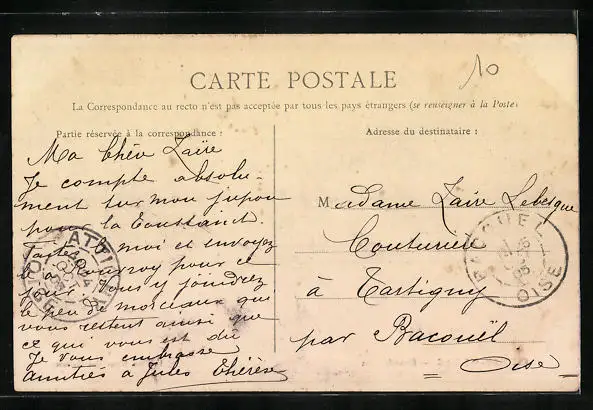 10
CARTE POSTALE
La Correspondance au recto n'est pas acceptée par tous les pays étrangers (se renseigner à la Poste)
Partie réservée à la correspondance :
Adresse du destinataire :
Ma Chère Zaïre
Je compte absolu-
ment sur mon jupon
pour la Toussaint.
moi et envoyez
pour ce
vous y joindrez
le peu de morceaux que
vous restent ainsi que
ce qui vous est dû
Je vous embrasse
amitiés à Jules Thérèse
Madame Zaïre Lebesgue
Couturière
à Tartigny
par Bacouël
Oise
BACOUEL
OISE